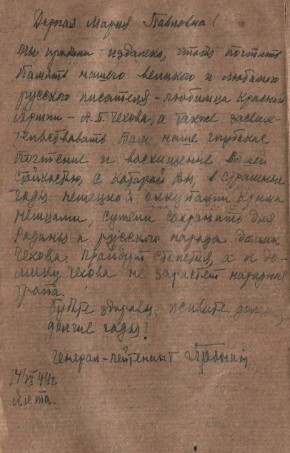 Дорогая Мария Павловна!
Мы прибыли издалека, чтобы почтить
память нашего великого и любимого
русского писателя - любимца Красной
Армии - А.П. Чехова, а также засвиде-
тельствовать Вам наше глубокое
почтение и восхищение Вашей
стойкостью, с которой Вы, в страшные
годы немецкой оккупации Крыма
немцами, сумели сохранить для
Родины и русского народа домик
Чехова. Пройдут столетия, а к до-
мику Чехова не зарастет народная
тропа.
Будьте здоровы, живите долгие,
долгие годы!
Генерал-лейтенант
Ялта.